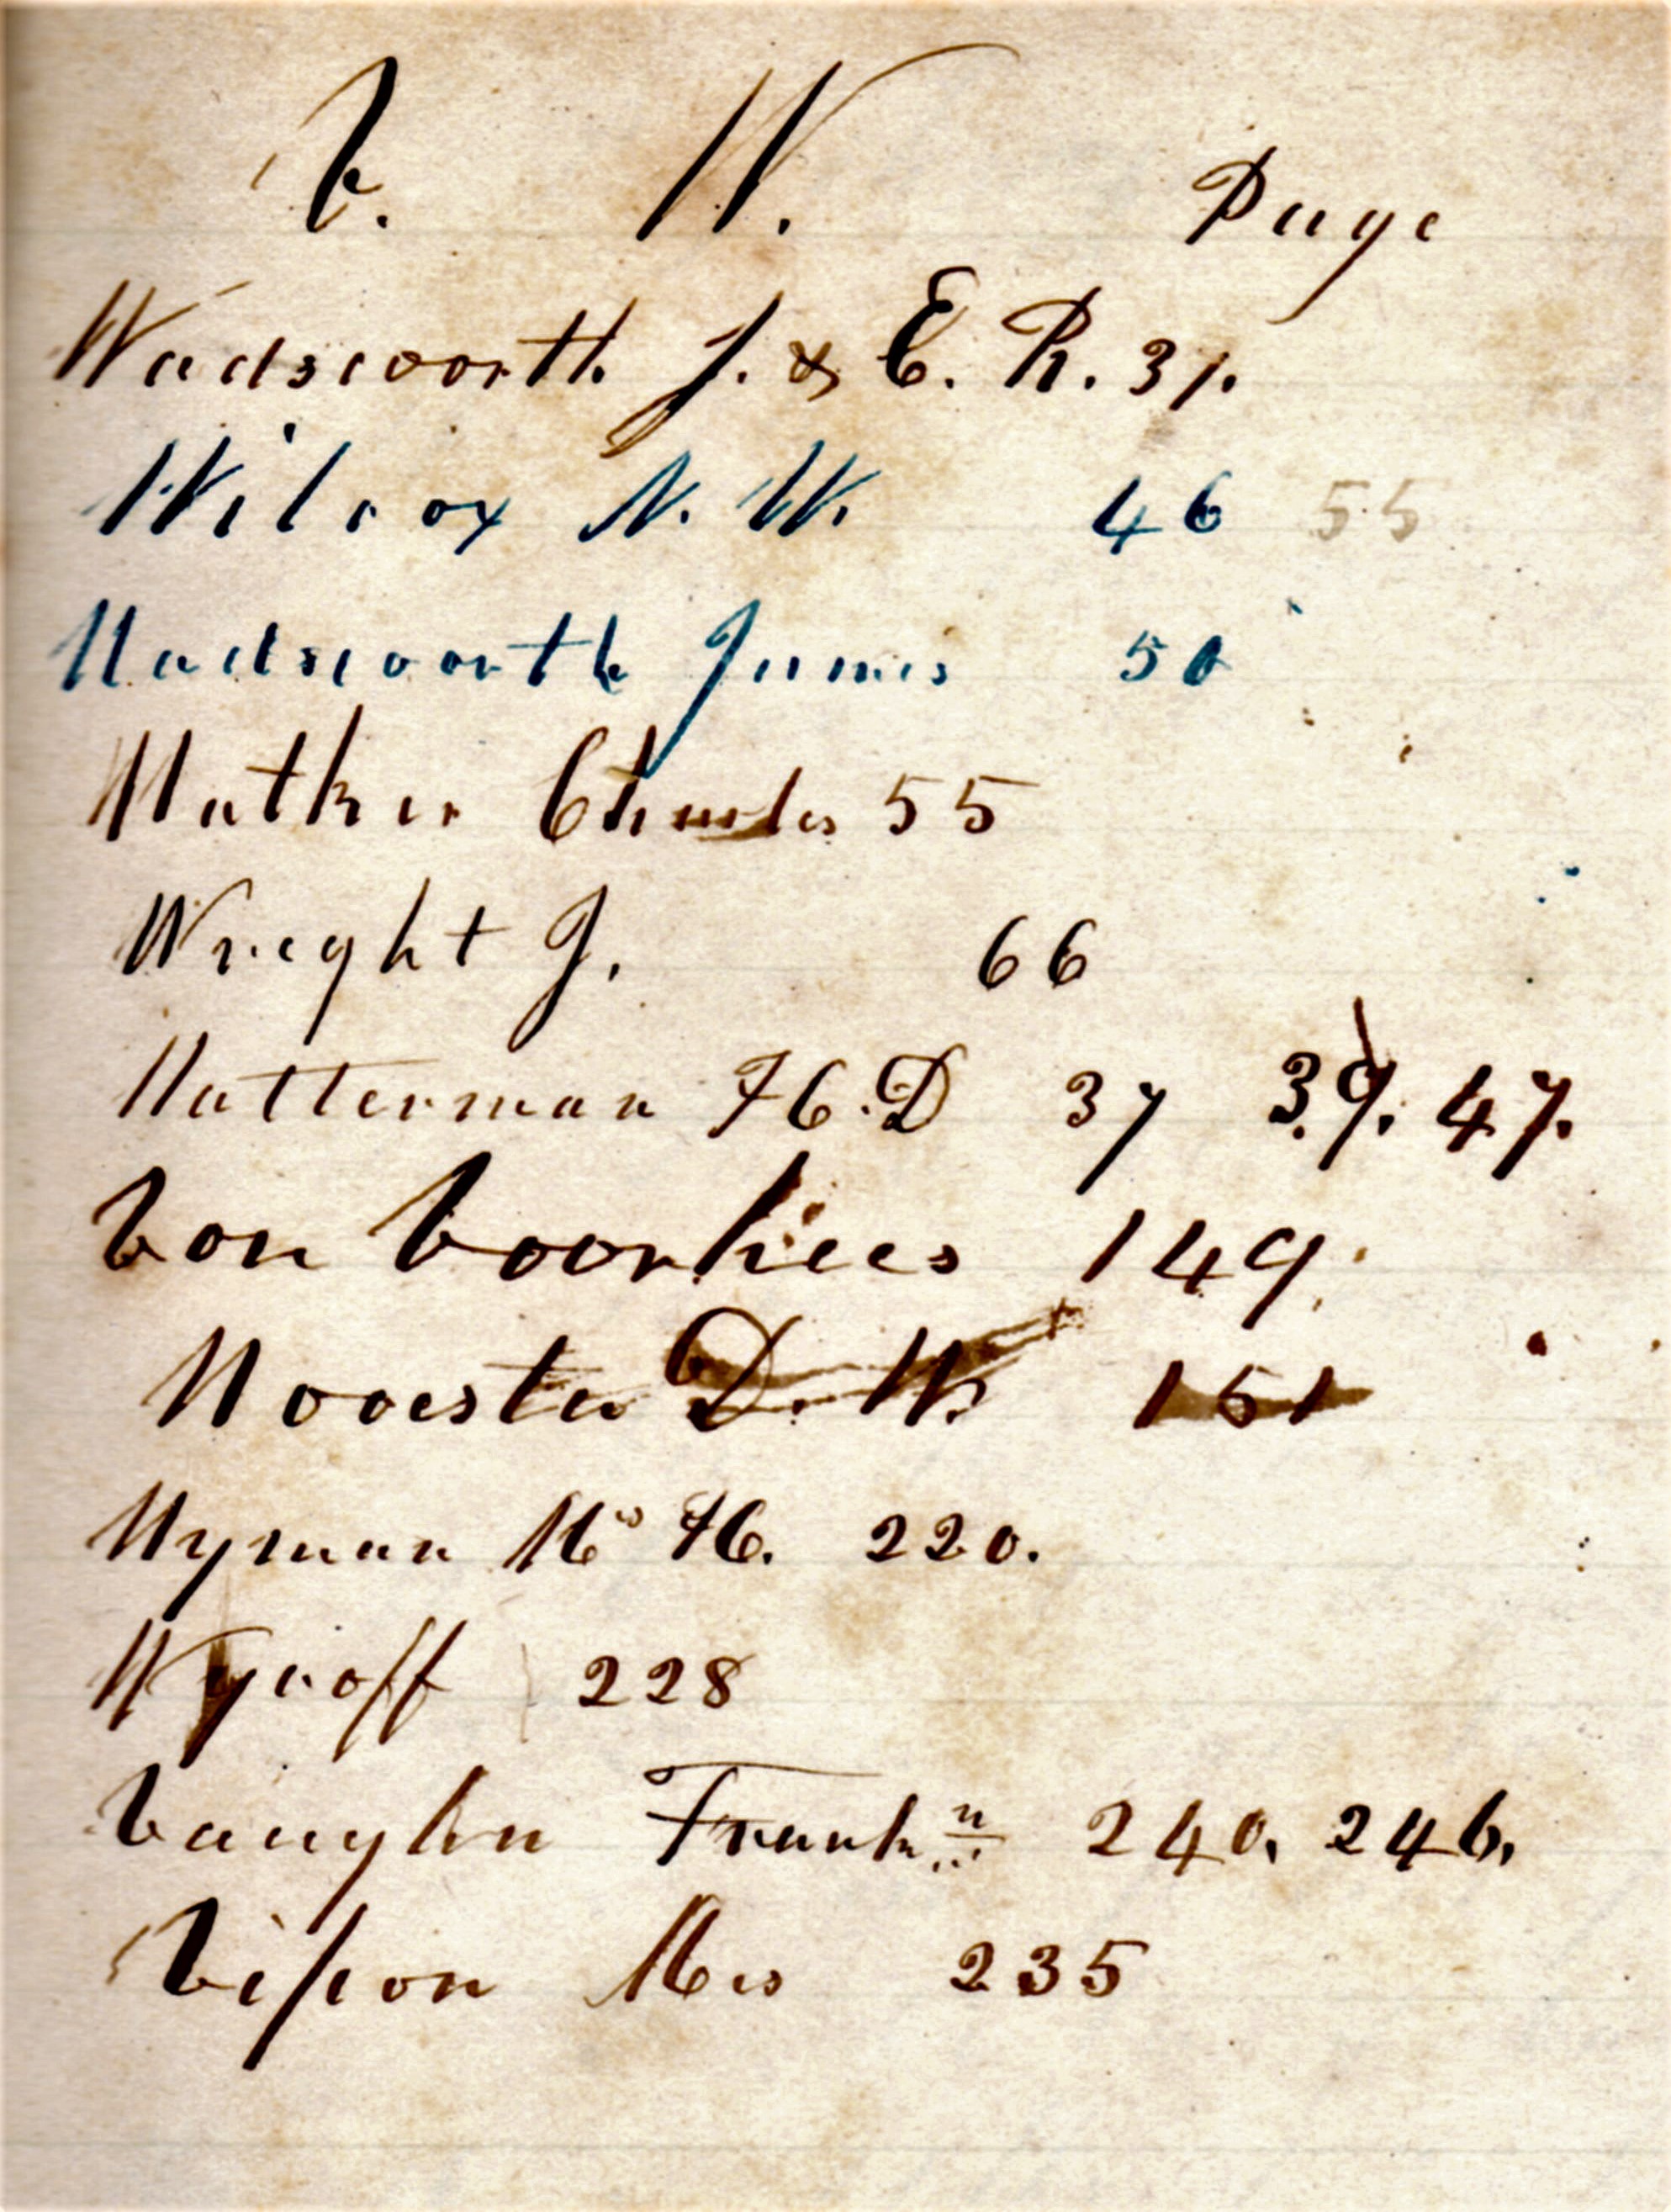 V. W. Page
Wadsworth J. & E. R. 31.
Wilcox N. W. 46 55
Wadsworth James 50
Charles 55
Wright J. 66
Watterman H. D 37 39. 47.
Von Voorhees 149.
D. W. 151
Wyman H. 220.
Wycoff 228
Vaughn Frankn 240. 246.
235